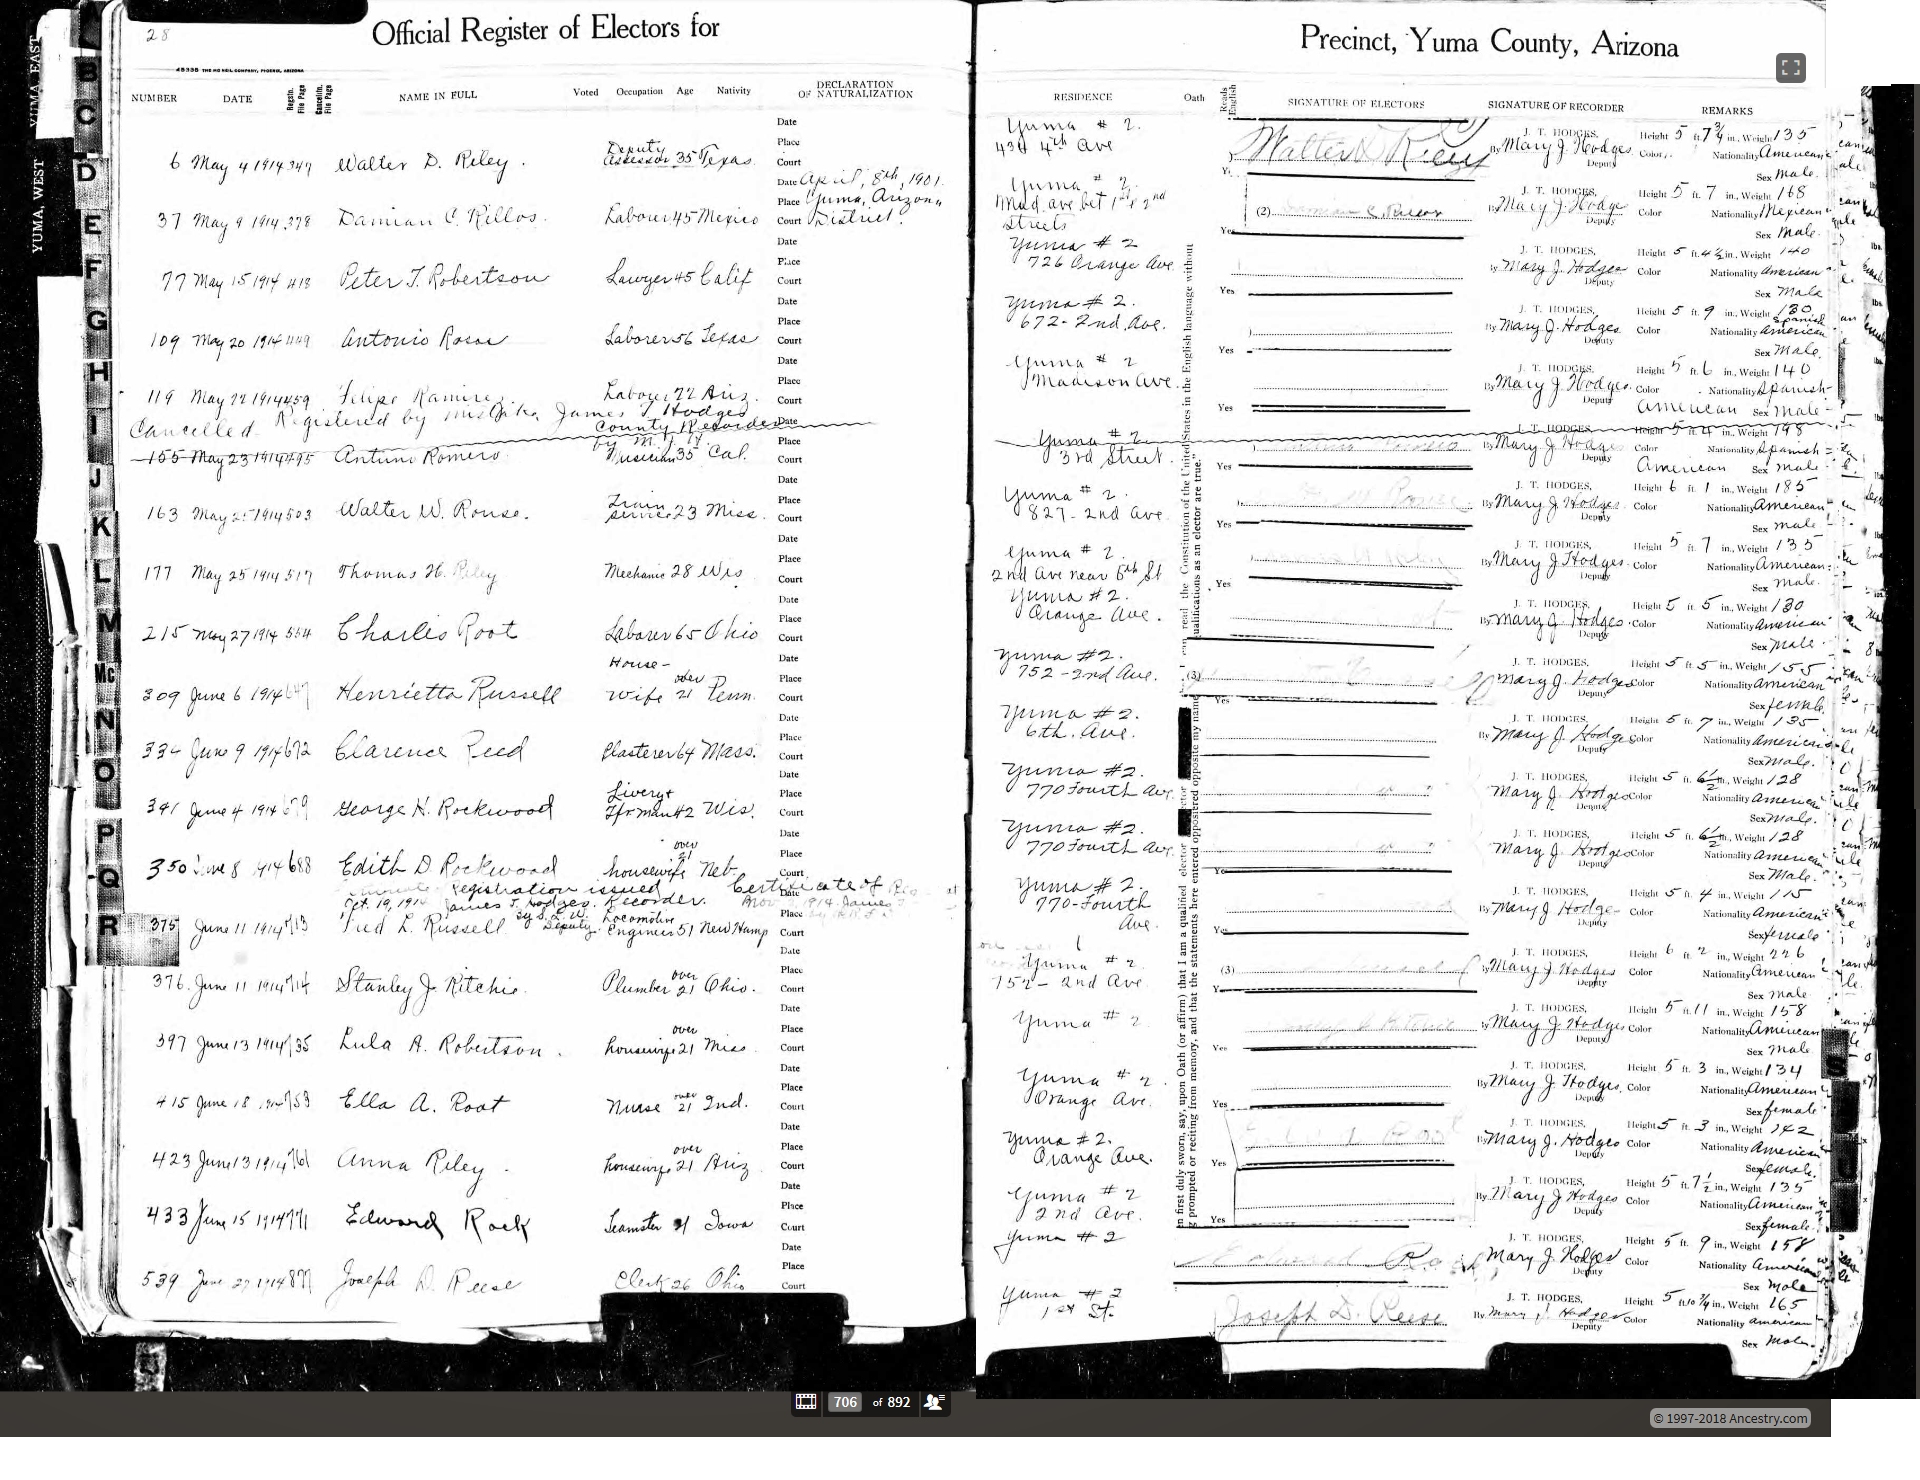 28
Official Register of Electors for
Precinct, Yuma County, Arizona
NUMBER DATE Regstn. File Page Cancelltn. File Page NAME IN FULL Voted Occupation Age Nativity DECLARATION OF NATURALIZATION
RESIDENCE Oath Reads English SIGNATURE OF ELECTORS SIGNATURE OF RECORDER REMARKS
YUMA, EAST
YUMA, WEST
B
C
D
E
F
G
H
I
J
K
L
M
Mc
N
O
P
Q
R
6 May 4 1914 347 Walter D. Riley. Deputy Assessor 35 Texas. Date Place Court
37 May 9 1914 378 Damian C. Rillos. Labour 45 Mexico Date April, 8th, 1901. Place Yuma, Arizona, Court District.
77 May 15 1914 418 Peter T. Robertson Lawyer 45 Calif Date Place Court
109 May 20 1914 449 Antonio Rosas Laborer 56 Texas Date Place Court
119 May 22 1914 459 Filipe Ramirez Labour 22 Ariz. Date Place Court
Cancelled. Registered by mistake, James T. Hodges
County Recorder
by M. J. H.
155 May 23 1914 495 Antuni Romero Musician 35 Cal. Date Place Court
163 May 25 1914 503 Walter W. Rouse. Train service 23 Miss. Date Place Court
177 May 25 1914 517 Thomas H. Riley Mechanic 28 Wis Date Place Court
215 May 27 1914 554 Charles Root Laborer 65 Ohio Date Place Court
309 June 6 1914 647 Henrietta Russell House-wife over 21 Penn. Date Place Court
June 9 1914 672 Clarence Reed Plasterer 64 Mass. Date Place Court
341 June 4 1914 679 George H. Rockwood Livery & Tfr man 42 Wis. Date Place Court
350 June 8 1914 688 Edith D Rockwood housewife over 21 Neb. Date Place Court
registration issued Certificate of
Oct. 19, 1914 James T. Hodges. Recorder. Nov. 1914. James
by S. L. W. Deputy.
375 June 11 1914 713 Fred L. Russell Locomotive Engineer 51 New Hamp Date Place Court
376. June 11 1914 714 Stanley J. Ritchie. Plumber over 21 Ohio. Date Place Court
397 June 13 1914 735 Lula A. Robertson. housewife over 21 Miss. Date Place Court
415 June 18 753 Ella A. Root Nurse over 21 Ind. Date Place Court
423 June 13 1914 761 Anna Riley. housewife over 21 Ariz Date Place Court
433 June 15 1914 771 Edward Rock Teamster 21 Iowa Date Place Court
539 June 27 1914 877 Joseph D. Reese Clerk 26 Ohio Date Place Court
Yuma # 2.
430 4th Ave Walter D Riley J. T. HODGES, By Mary J. Hodges Deputy Height 5 ft 7 3/4 in., Weight 135 Color, Nationality American Sex Male.
Yuma # 2.
Mad. ave bet 1st & 2nd Streets Yes (2) J. T. HODGES, Mary J. Hodge Deputy Height 5 ft. 7 in., Weight 168 Color Nationality Mexican Sex Male.
Yuma # 2
726 Orange Ave. Yes J. T. HODGES, By Mary J. Hodges Deputy Height 5 ft 4 1/2 in., Weight 140 Color Nationality American Sex Male
Yuma # 2.
672- 2nd. Ave. Yes J. T. HODGES, By Mary J. Hodges Deputy Height 5 ft. 9 in., Weight 130 Color Nationality Spanish American Sex Male.
Yuma # 2
Madison Ave. Yes J. T. HODGES, By Mary J. Hodges. Deputy Height 5 ft. 6 in., Weight 140 Color Nationality Spanish-American Sex Male-
Yuma # 2
3rd Street. Yes J. T. HODGES, By Mary J. Hodges Deputy Height 5 ft. 4 in., Weight 198 Color Nationality Spanish = American Sex male
Yuma # 2.
827- 2nd Ave Yes W Rouse. J. T. HODGES, By Mary J. Hodges Deputy Height 6 ft. 1 in., Weight 185 Color Nationality American Sex male
Yuma # 2.
2nd Ave near 6th St Yes J. T. HODGES, By Mary J Hodges. Deputy Height 5 ft. 7 in., Weight 135 Color Nationality American. Sex male.
Yuma # 2.
Orange Ave. J. T. HODGES, By Mary J. Hodges. Deputy Height 5 ft. 5 in., Weight 130 Color Nationality American Sex Male
Yuma #2.
752 - 2nd Ave. (3) Yes J. T. HODGES, Mary J. Hodges Deputy Height 5 ft 5 in., Weight 155 Color Nationality American Sex female.
Yuma #2.
6th. Ave. J. T. HODGES, Mary J. Hodges Height 5 ft. 7 in., Weight 135 Color Nationality American Sex Male.
Yuma #2.
770 Fourth Ave. J. T. HODGES, Mary J. Hodges Deputy Height 5 ft. 6 1/2 in., Weight 128 Color Nationality American Sex Male.
Yuma #2.
770 Fourth Ave. Yes J. T. HODGES, Mary J. Hodges Deputy Height 5 ft. 6 1/2 in., Weight 128 Color Nationality American Sex Male.
Yuma # 2.
770- Fourth Ave. Yes J. T. HODGES, By Mary J. Hodge- Deputy Height 5 ft. 4 in., Weight 115 Color Nationality American Sex female
Yuma # 2
752- 2nd Ave. (3) J. T. HODGES, By Mary J. Hodges Deputy Height 6 ft. 2 in., Weight 226 Color Nationality American Sex Male
Yuma # 2 Yes J. T. HODGES, By Mary J. Hodges Deputy Height 5 ft. 11 in., Weight 158 Color Nationality American Sex Male
Yuma # 2
Orange Ave. Yes J. T. HODGES, By Mary J. Hodges. Deputy Height 5 ft. 3 in., Weight 134 Color Nationality American Sex female
Yuma # 2.
Orange Ave. Yes Root J. T. HODGES, By Mary J. Hodges Deputy Height 5 ft. 3 in., Weight 142 Color Nationality American Sex female.
Yuma # 2
2nd Ave. Yes J. T. HODGES, By Mary J Hodges Deputy Height 5 ft. 7 1/2 in., Weight 135 Color Nationality American Sex female.
Yuma # 2 Edward Rock J. T. HODGES, Mary J. Hodges Deputy Height 5 ft. 9 in., Weight 158 Color Nationality American Sex Male
Yuma # 2
1st St. Joseph D. Reese J. T. HODGES, By Mary J. Hodges Deputy Height 5 ft 10 3/4 in., Weight 165 Color Nationality American Sex Male
706 of 892
© 1997-2018 Ancestry.com